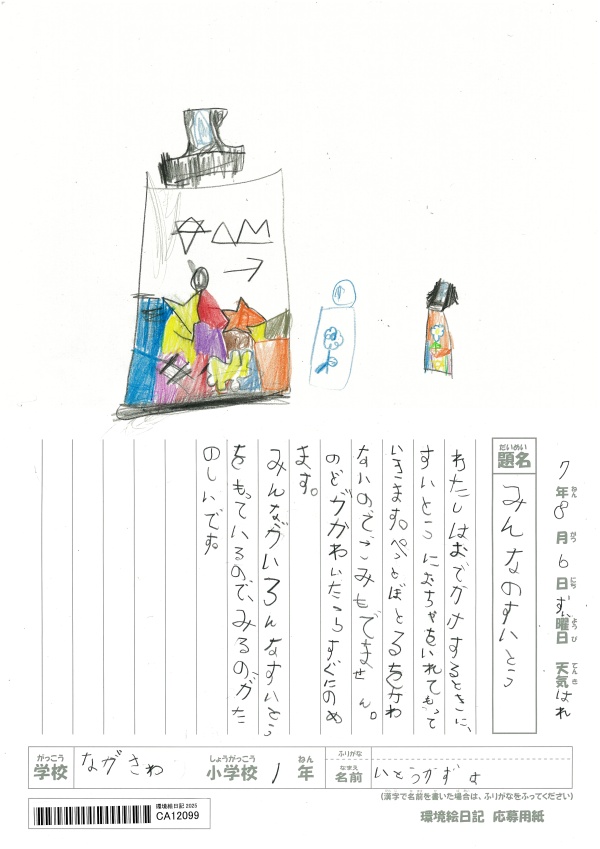 7年8月6日すい曜日 天気はれ
ねん がつ にち ようび てんき
だいめい
題名 みんなのすいとう
わたしはおでかけするときに、
すいとうにおちゃをいれてもって
いきます。ぺっとぼとるをかわ
ないのでごみもでません。
のどがかわいたらすぐにのめ
ます。
みんながいろんなすいとう
をもっているので、みるのがた
のしいです。
がっこう しょうがっこう ねん
学校 ながさわ 小学校 1年
ふりがな
なまえ
名前 いとうかずよ
(漢字で名前を書いた場合は、ふりがなをふってください)
環境絵日記 2025
CA12099
環境絵日記 応募用紙